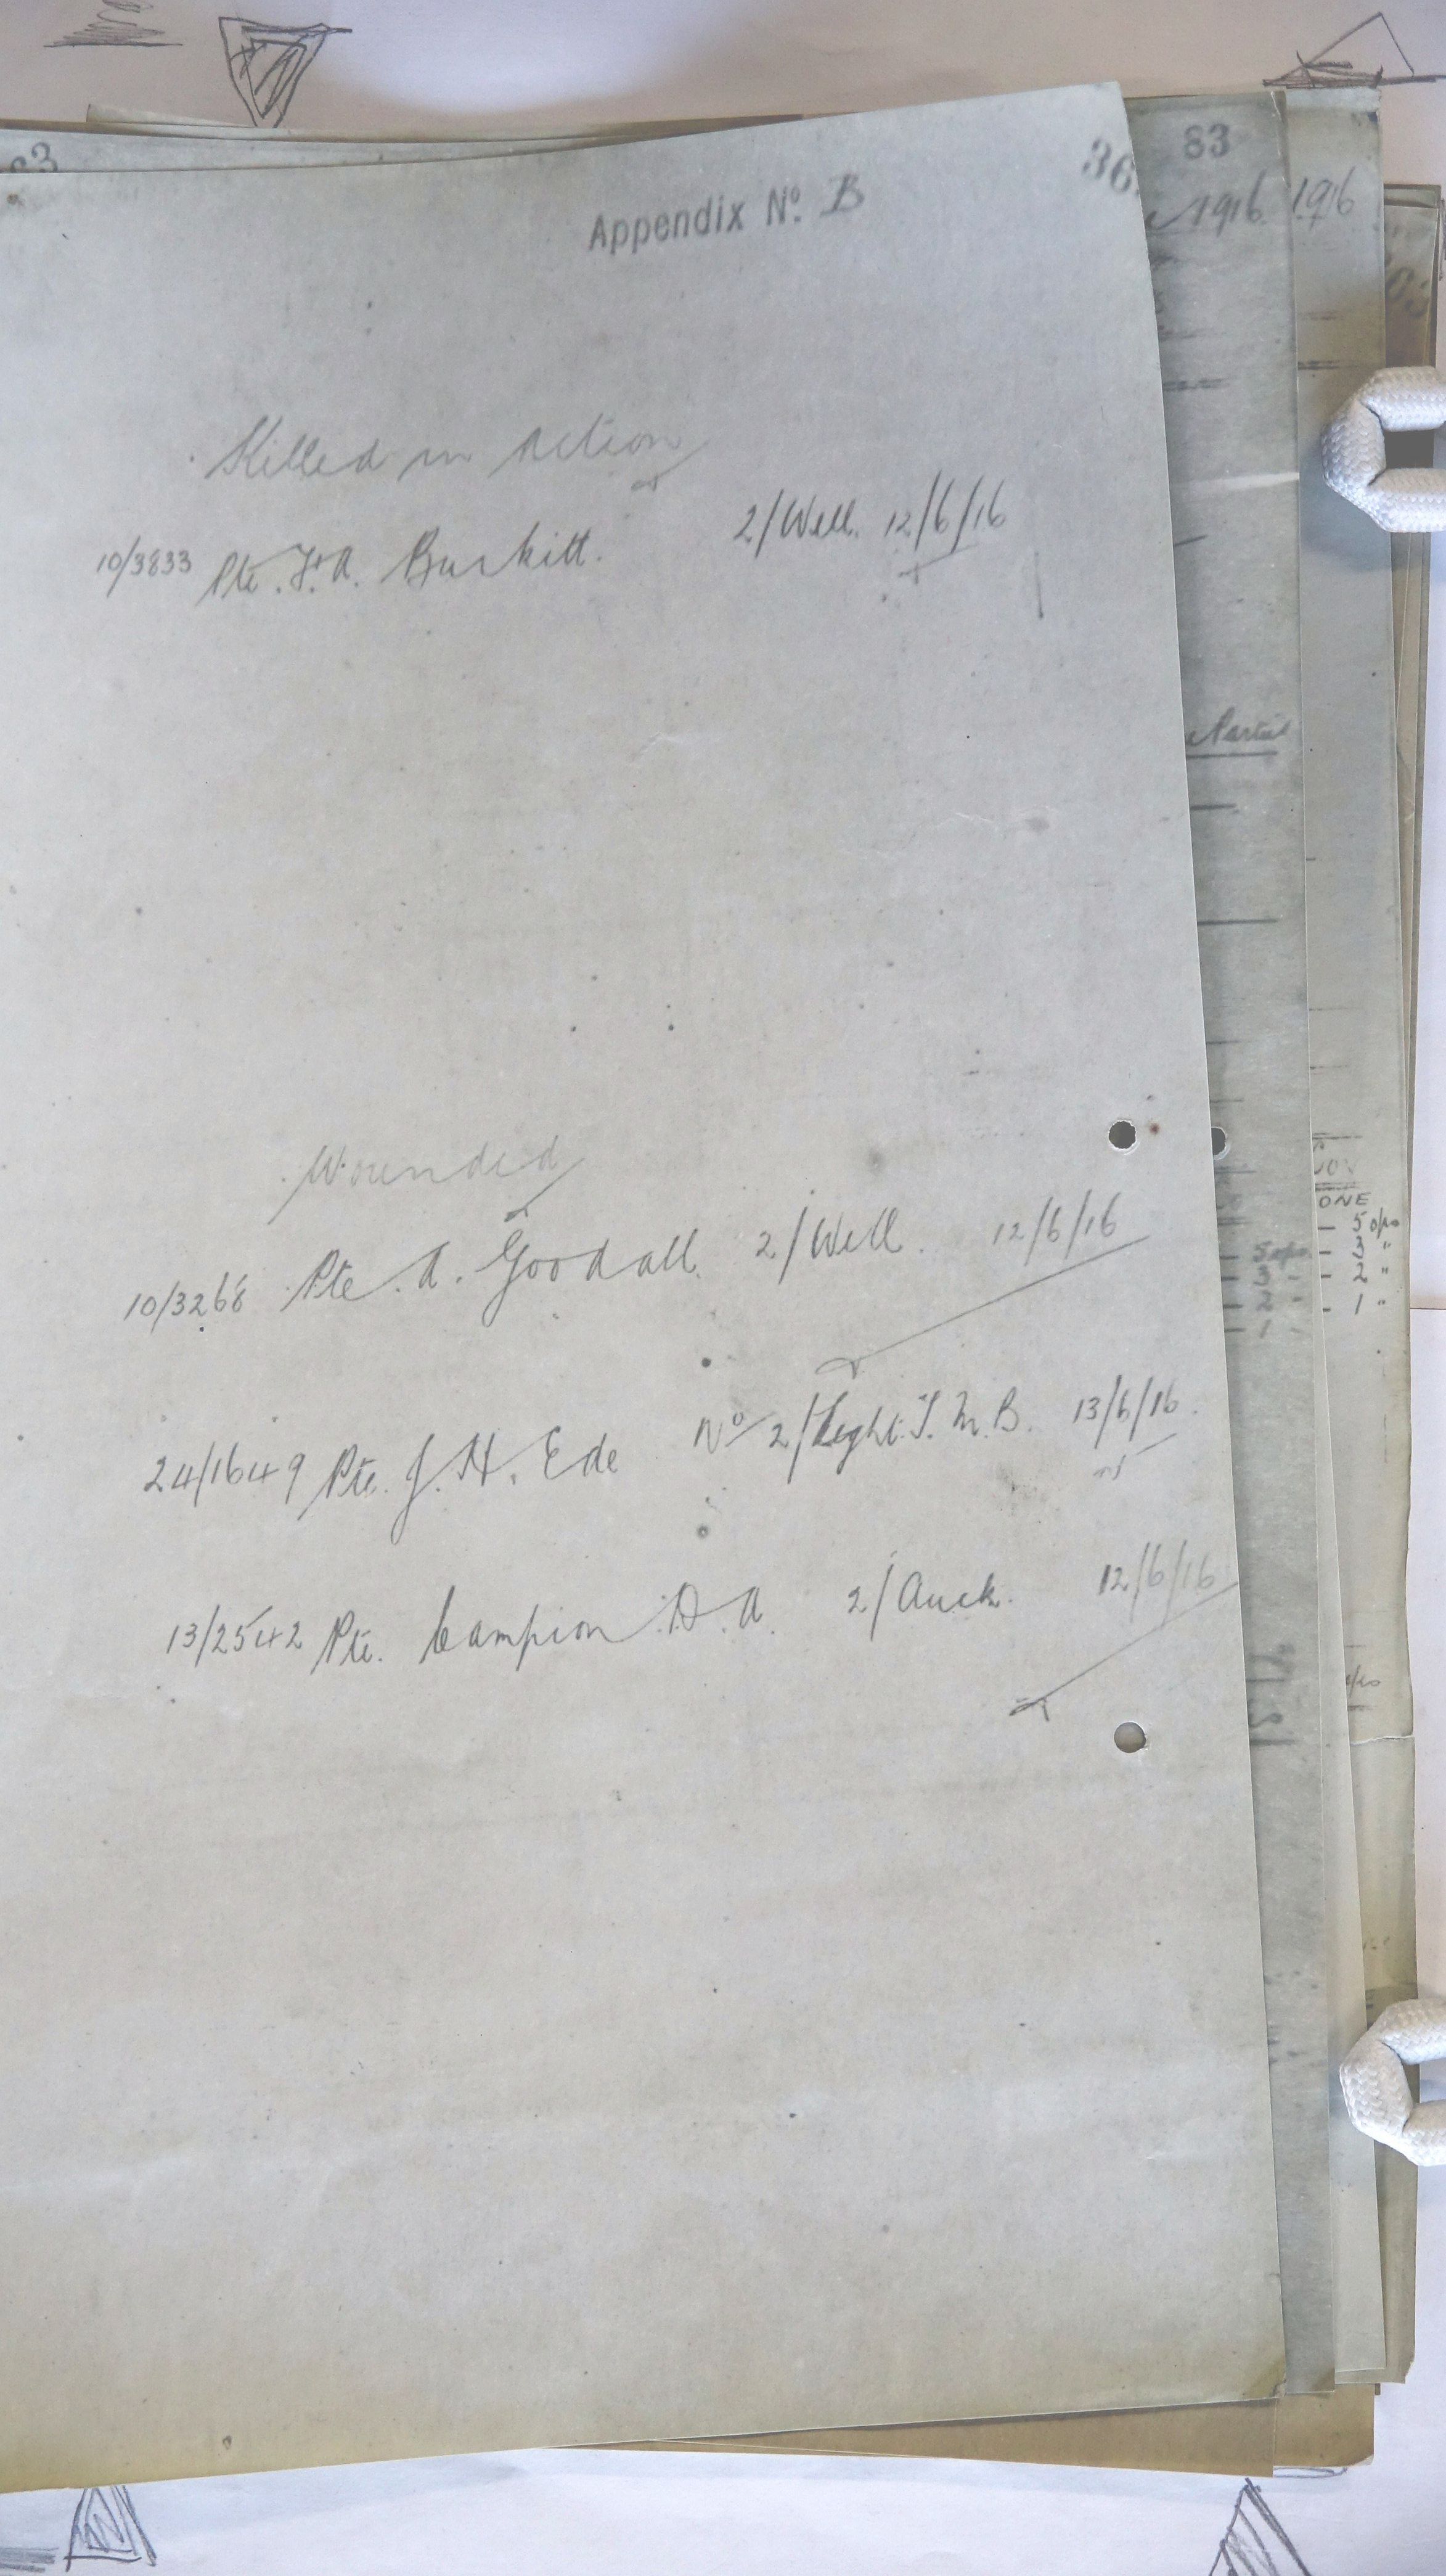 Appendix No. B
Killed in Action
10/3833 Pte. F. A. Burkitt. 2/Well. 12/6/16
Wounded
10/3268 Pte. A. Goodall. 2/Well. 12/6/16
24/1649 Pte. J. H. Ede No 2/Light. T. M. B. 13/6/16.
13/2542 Pte. Campion. A. A. 2/Auck. 12/6/16
83
1916
1916
Parties
ONE
5 o/rs
3 "
2 "
1 "